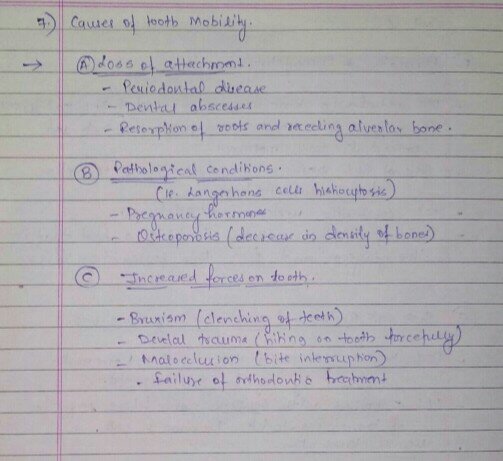 7.) Causes of tooth Mobility.
→ (A) Loss of attachment.
- Periodontal disease
- Dental abscesses
- Resorption of roots and receeding alveolar bone.
(B) Pathological conditions.
(ie. Langerhans cells histiocytosis)
- Pregnancy hormones
- Osteoporosis (decrease in density of bones)
(C) Increased forces on tooth.
- Bruxism (clenching of teeth)
- Dental trauma (hiting on tooth forcefully)
- Malocclusion (bite interruption)
- Failure of orthodontic treatment